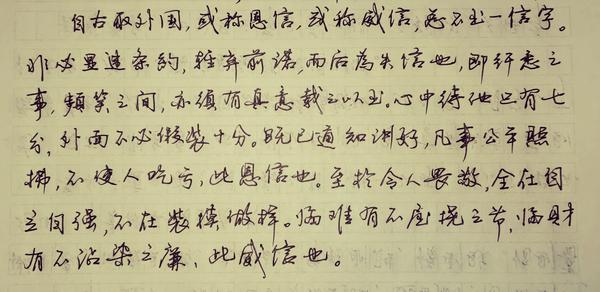 自古驭外国，或称恩信，或称威信，总不出一信字。
非必显违条约，轻弃前诺，而后为失信也，即纤悉之
事，频笑之间，亦须有真意载之以出。心中待他只有七
分，外面不必假装十分。既已通和讲好，凡事公平照
拂，不使人吃亏，此恩信也。至于令人畏敬，全在自
立自强，不在装模做样。临难有不屈挠之节，临财
有不沾染之廉，此威信也。